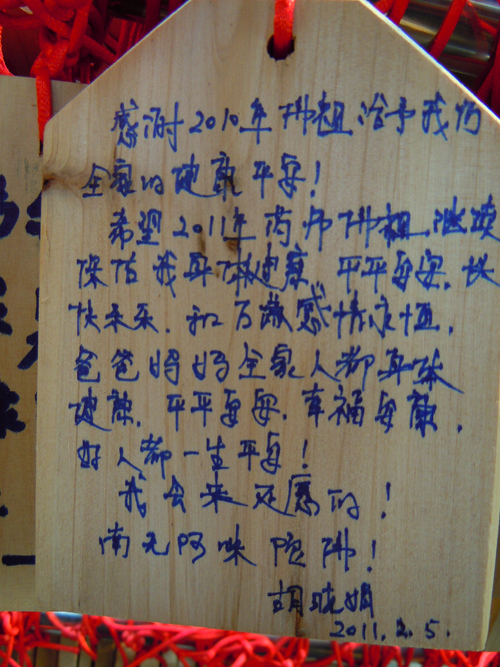 感谢2010年佛祖给予我们
全家的健康平安！
希望2011年 佛祖继续
保佑我身体健康 平平安安，快
快乐乐，和万 感情永恒，
爸爸妈妈全家人都身体
健康，平平安安，幸福安康，
好人都一生平安！
我会来还愿的！
南无阿咪陀佛！
胡晓娟
2011.2.5.